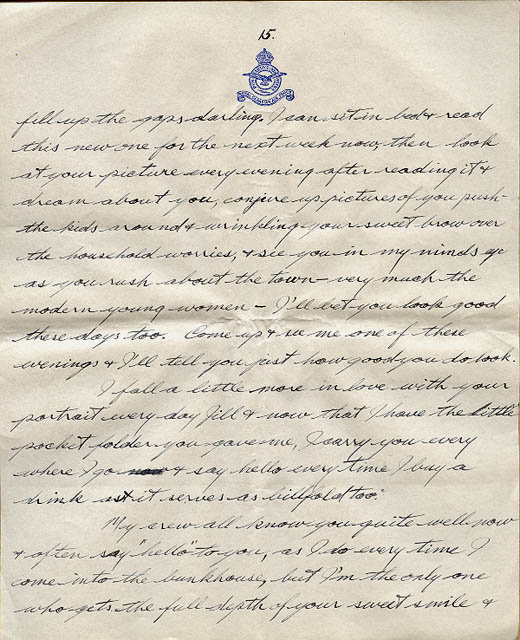 15.
fill up the gaps darling. I can sit in bed & read
this new one for the next week now, then look
at your picture every evening after reading it &
dream about you, conjure up pictures of you push-
the kids around & wrinkling your sweet brow over
the household worries, & see you in my minds eye
as you rush about the town – very much the
modern young women – I'll bet you look good
these days too. Come up & see me one of these
evenings & I'll tell you just how good you do look.
I fall a little more in love with your
portrait every day Jill & now that I have the little
pocket folder you gave me, I carry you every
where I go & say hello every time I buy a
drink as it serves as billfold too.
My crew all know you quite well now
& often say "hello" to you, as I do every time I
come into the bunkhouse, but I'm the only one
who gets the full depth of your sweet smile &